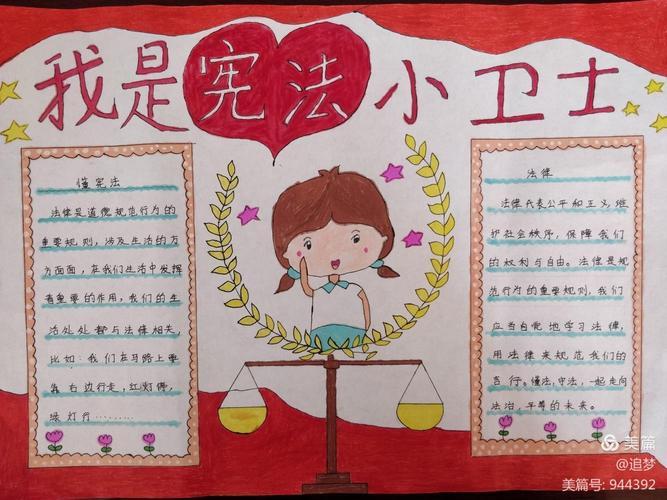 我是宪法小卫士
懂宪法
法律是道德规范行为的
重要规则，涉及生活的方
方面面，在我们生活中发挥
着重要的作用，我们的生
活处处都与法律相关，
比如：我们在马路上要
靠右边行走，红灯停，
绿灯行………
法律
法律代表公平和正义，维
护社会秩序，保障我们
的权利与自由。法律是规
范行为的重要规则，我们
应当自觉地学习法律，
用法律来规范我们的
言行。懂法，守法，一起走向
法治，平等的未来。
美篇
@追梦
美篇号: 944392